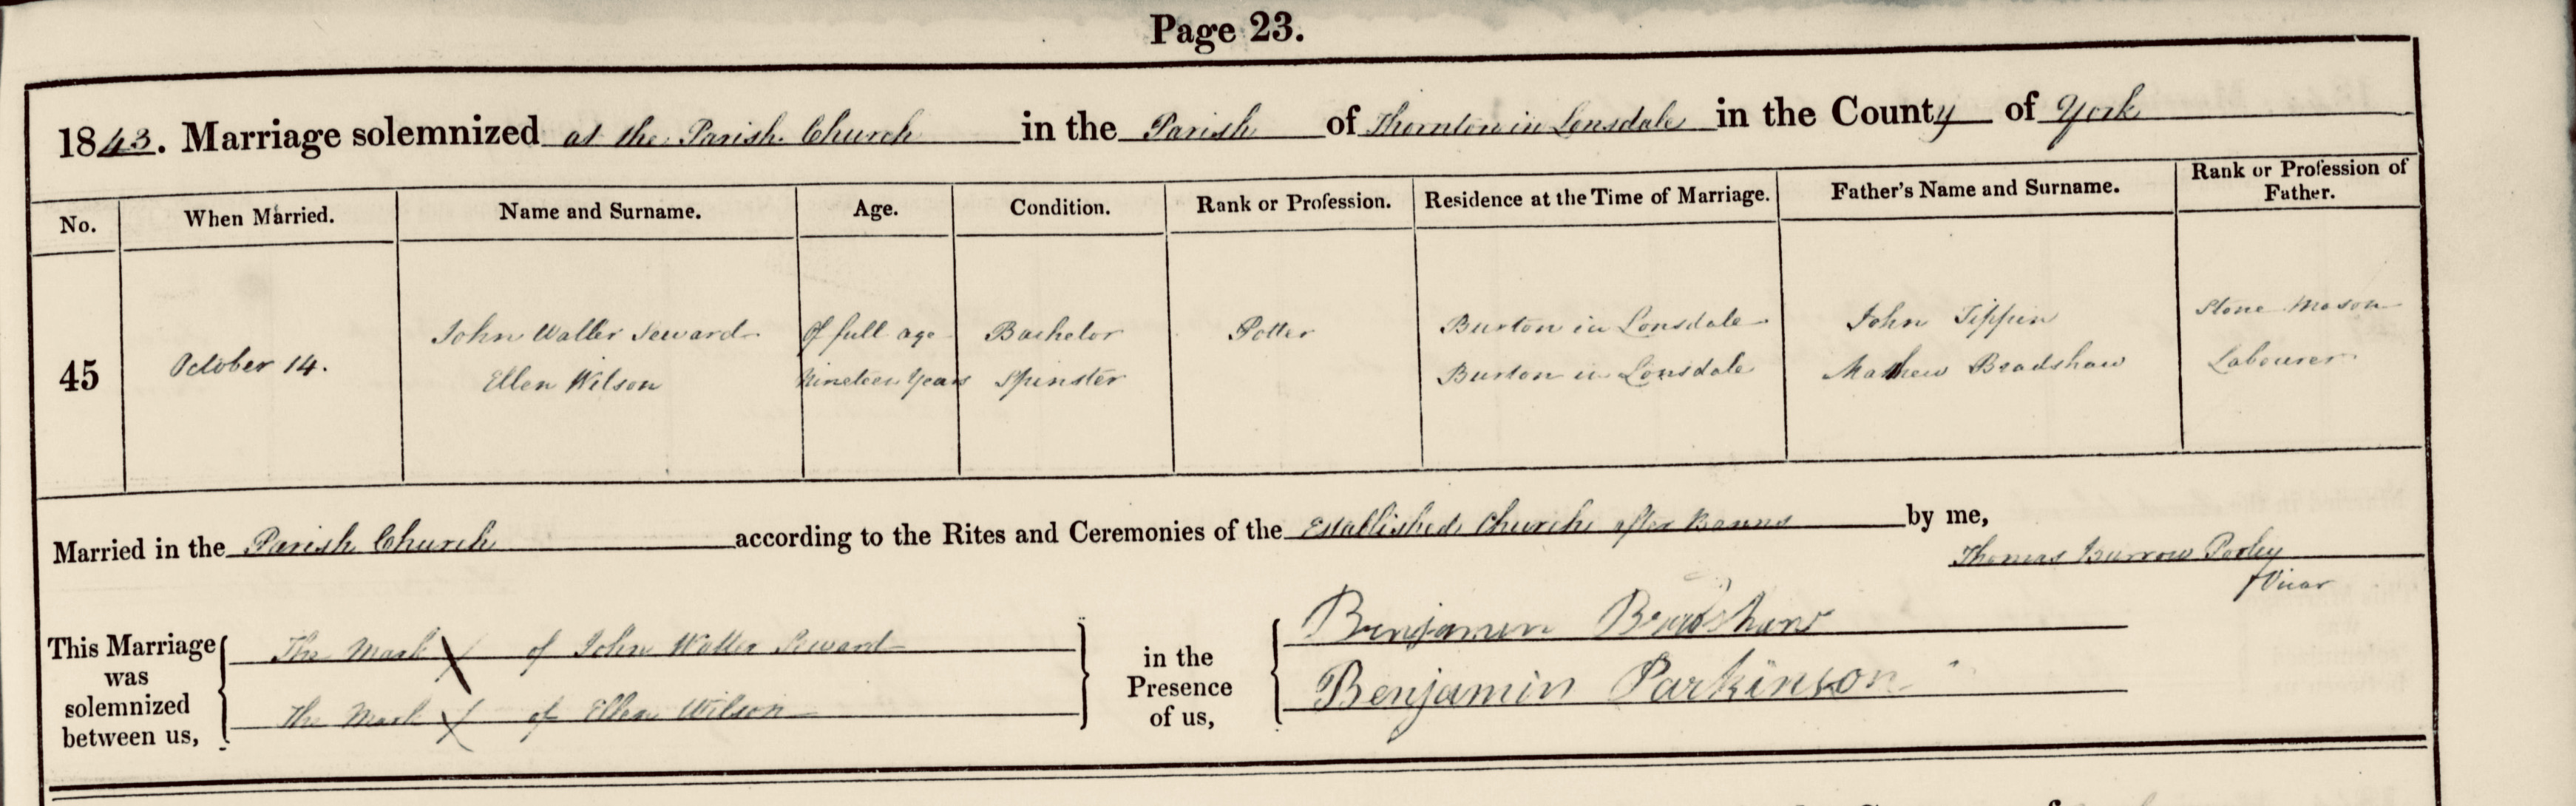 Page 23.
1843. Marriage solemnized at the Parish Church in the Parish of Thornton in Lonsdale in the County of York
No. When Married. Name and Surname. Age. Condition. Rank or Profession. Residence at the Time of Marriage. Father's Name and Surname. Rank or Profession of Father.
45 October 14. John Waller Seward Of full age Bachelor Potter Burton in Lonsdale John Tippin Stone Mason
Ellen Wilson Nineteen Years Spinster Burton in Lonsdale Mathew Bradshaw Labourer
Married in the Parish Church according to the Rites and Ceremonies of the Established Church after Banns by me,
Thomas Burrow
Vicar
This Marriage was solemnized between us,
The Mark X of John Waller Seward
The Mark X of Ellen Wilson
in the Presence of us,
Benjamin Bradshaw
Benjamin Parkinson